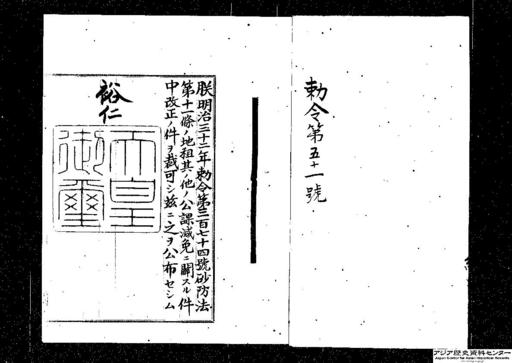 勅令第五十一號
朕明治三十二年勅令第三百七十四號砂防法
第十一條ノ地租其ノ他ノ公課減免ニ關スル件
中改正ノ件ヲ裁可シ玆ニ之ヲ公布セシム
裕仁
天皇
御璽
アジア歴史資料センター
Japan Center for Asian Historical Records